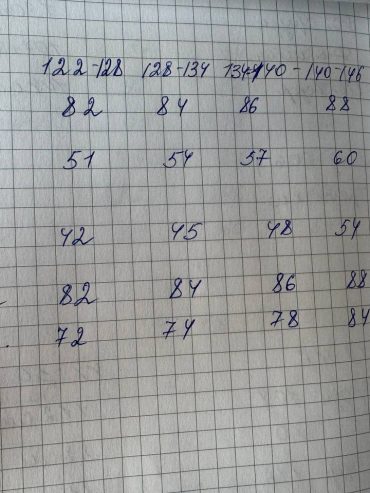 122-128 128-134 134-140 - 140-146
82 84 86 88
51 54 57 60
42 45 48 54
82 84 86 88
72 74 78 84